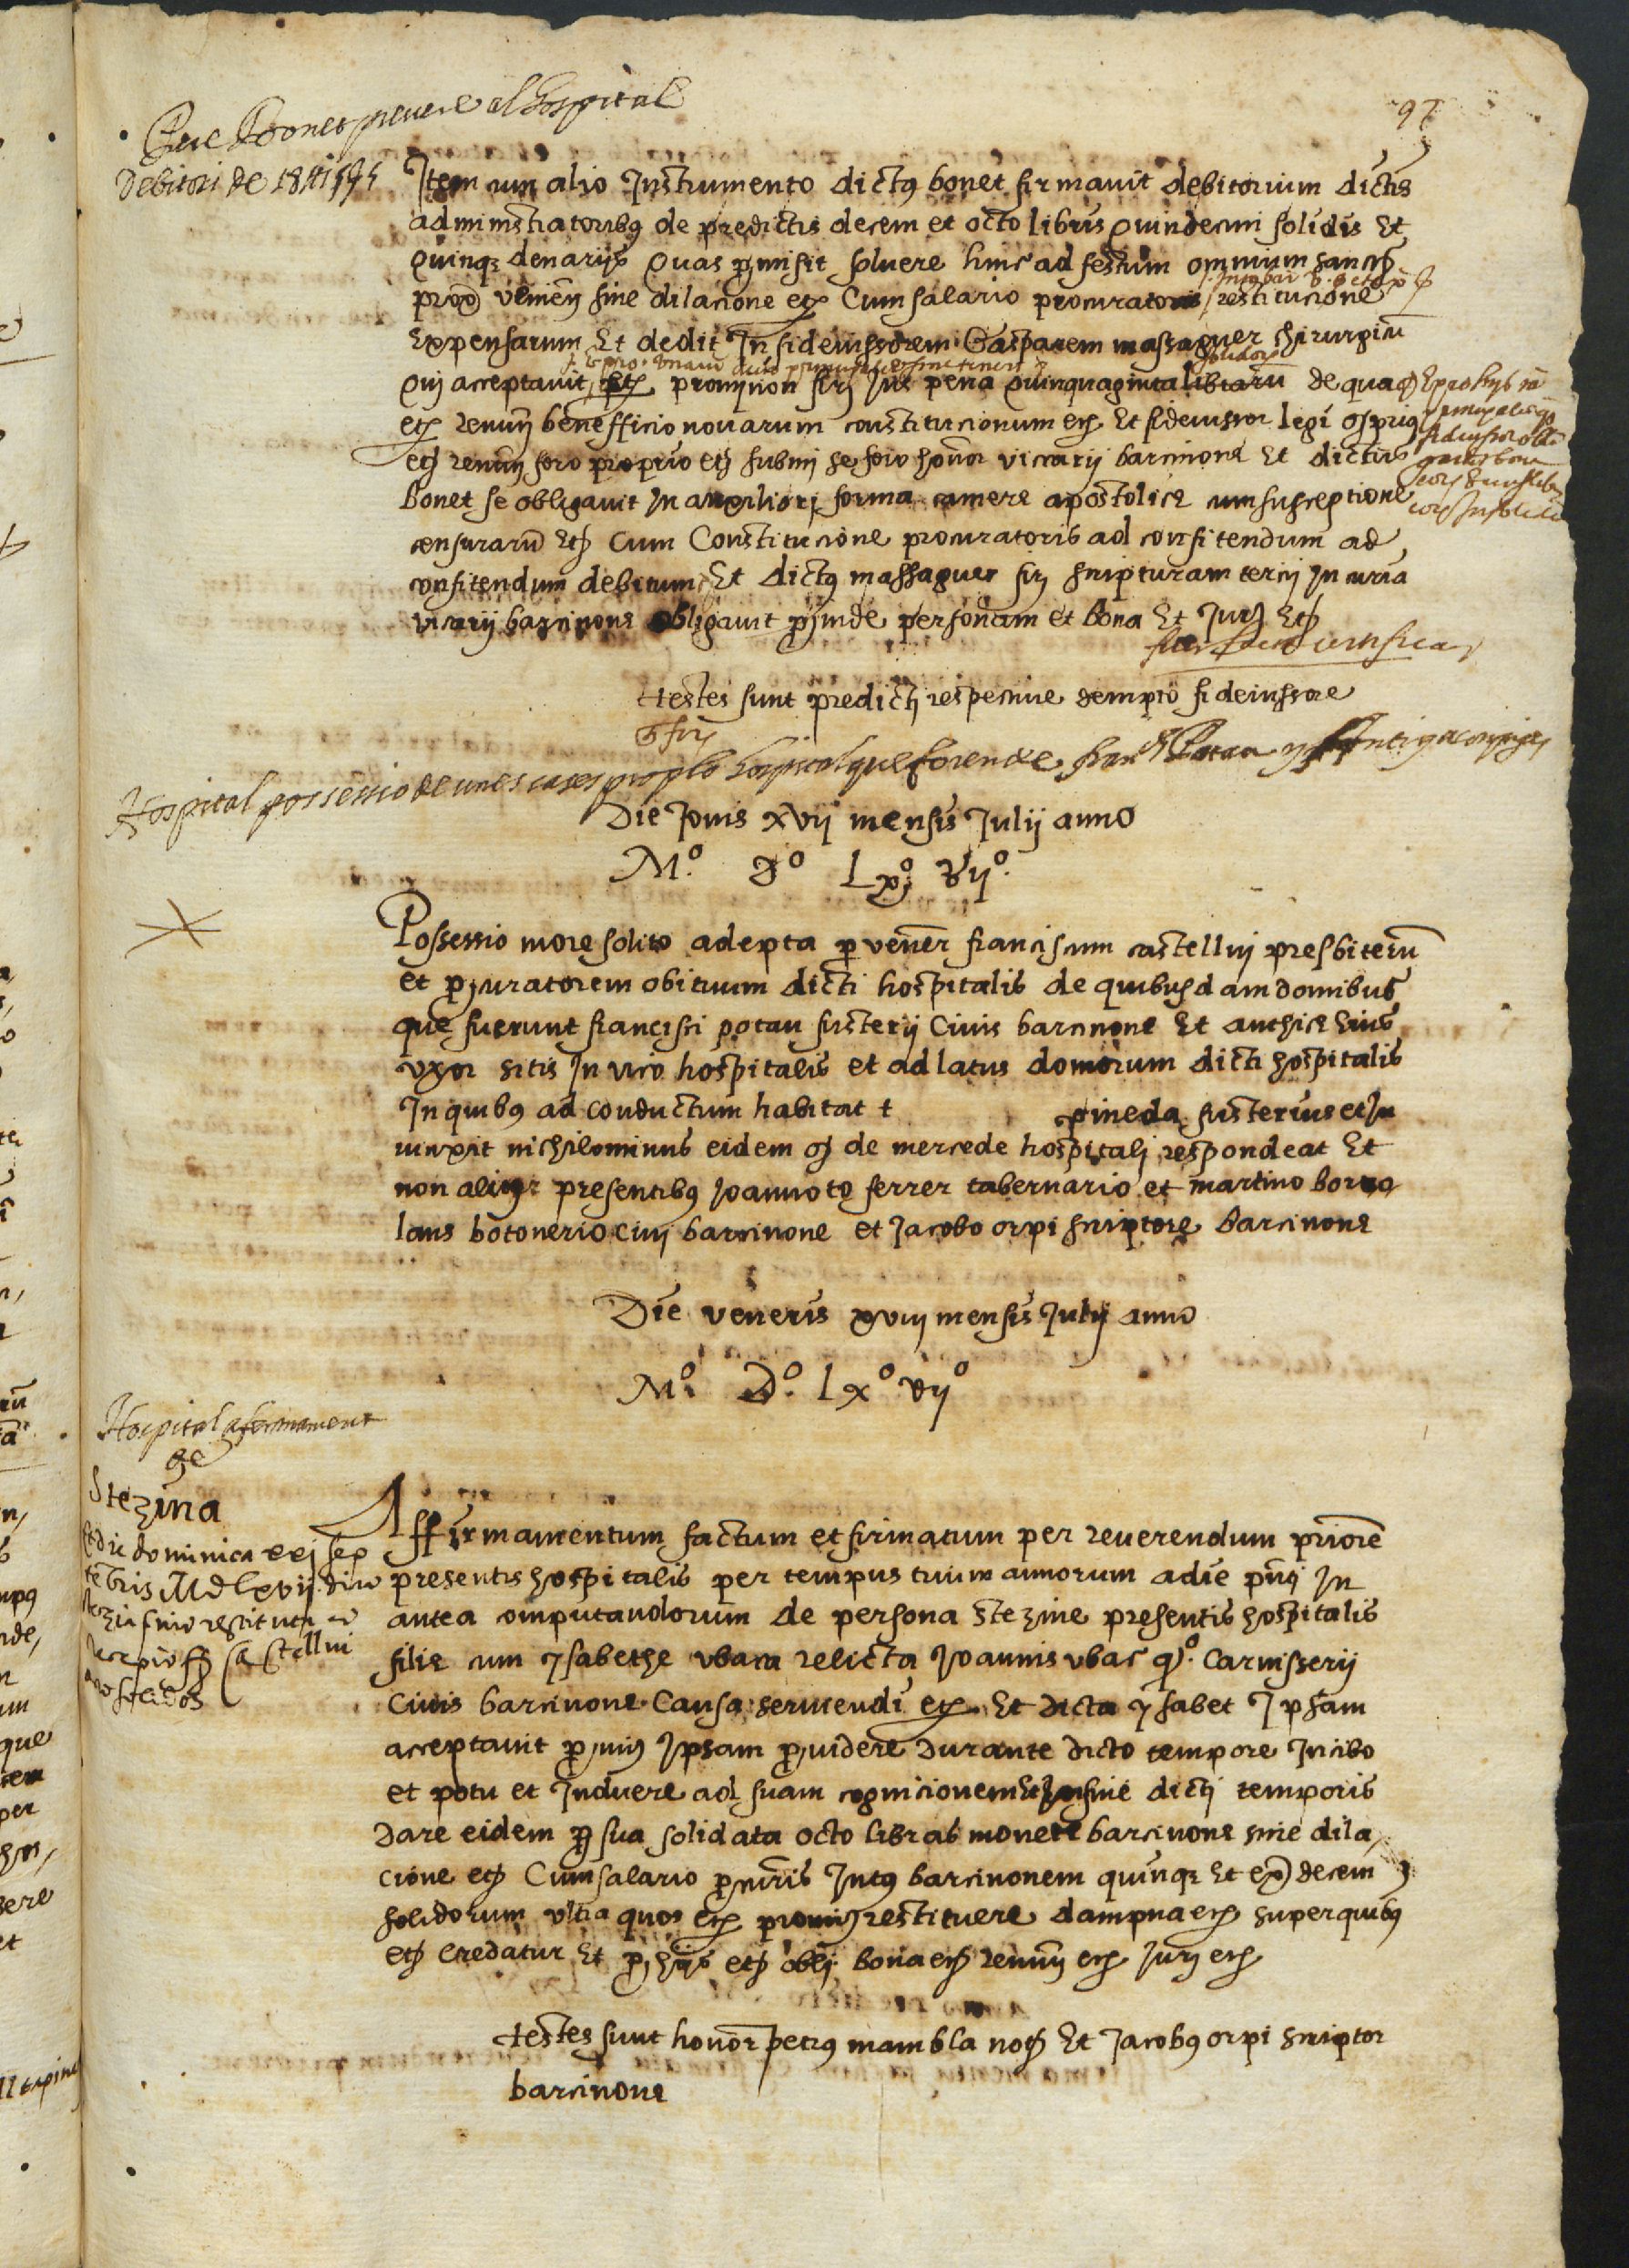 97
Pere Bonet prevere al hospital
Debitori de 18 ₶ 15 s 5
Item cum alio Instrumento dictus bonet firmavit debitorium dictis
administratoribus de predictis decem et octo libris Quindecim solidis Et
Quinque denarijs Quas promisit solvere hinc ad festum omnium sanctorum
proxime venien sine dilacione etc Cum salario procuratoris restitucione
Expensarum Et dedit In fideiussorem Gasparem massaguer chirurgicum
Qui acceptavit etc promi non fir jus pena quinquaginta librarum de qua
solidorum
etc renun benefficio novarum constitucionum etc Et fideiussor legi
etc renun foro proprio etc submi se foro honor vicarij barcinone Et dictus
Bonet se obligavit In ampliori forma camere apostolice cum susceptione
censurarum Etc Cum Constitucione procuratoris ad confitendum ad
confitendum debitum Et dictus massaguer fir scripturam tercij In curia
vicarij barcinone obligavit proinde personam et bona Et Jur Etc
testes sunt predicti respective dempto fideiussore
Hospital possessio de unes cases prop lo hospital que foren de
Die Jovis xvij mensis Julij anno
Mº. Dº Lxº vijº.
Possessio more solito adepta per vener franciscum castellvij presbiterum
et procuratorem obituum dicti hospitalis de quibusdam domibus
que fuerunt francisci potau fusterij Civis barcinone Et anthice Eius
uxor sitis In vico hospitalis et ad latus domorum dicti hospitalis
In quibus ad conductum habitat t pineda fusterius et In
iunxit nichilominus eidem q de mercede hospitalj respondeat Et
non aliter presentibus Joannoto ferrer tabernario et martino
lans botonerio civi barcinone et Jacobo orpi scriptore barcinone
Die veneris xviij mensis Julij anno
Mº. Dº. lxº vijº
Hospital afermament
de
Stezina
Et die dominica xxj sep
tembris MDlxvij
castellvi
solidos
Affirmamentum factum et firmatum per reverendum priorem
presentis hospitalis per tempus trium annorum a die pnti In
antea computandorum de persona Stezine presentis hospitalis
filie cum ysabethe ubaca relicta Joannis ubac qº. Carnisserij
Civis barcinone Causa serviendi etc. Et dicta ysabet Ipsam
acceptavit promis Ipsam providere Durante dicto tempore In cibo
et potu et Induere ad suam cognicionem Et In fine dicti temporis
Dare eidem pro sua solidata octo libras monete barcinone sine dila
cione etc Cum salario procuris Intus barcinonem quinque Et ex decem
solidorum ultra quos etc promis restituere dampna etc super quibus
etc credatur Et pro hijs etc obli bona etc renun etc Jur etc
testes sunt honor petrus mambla not Et Jacobus orpi scriptor
barcinone